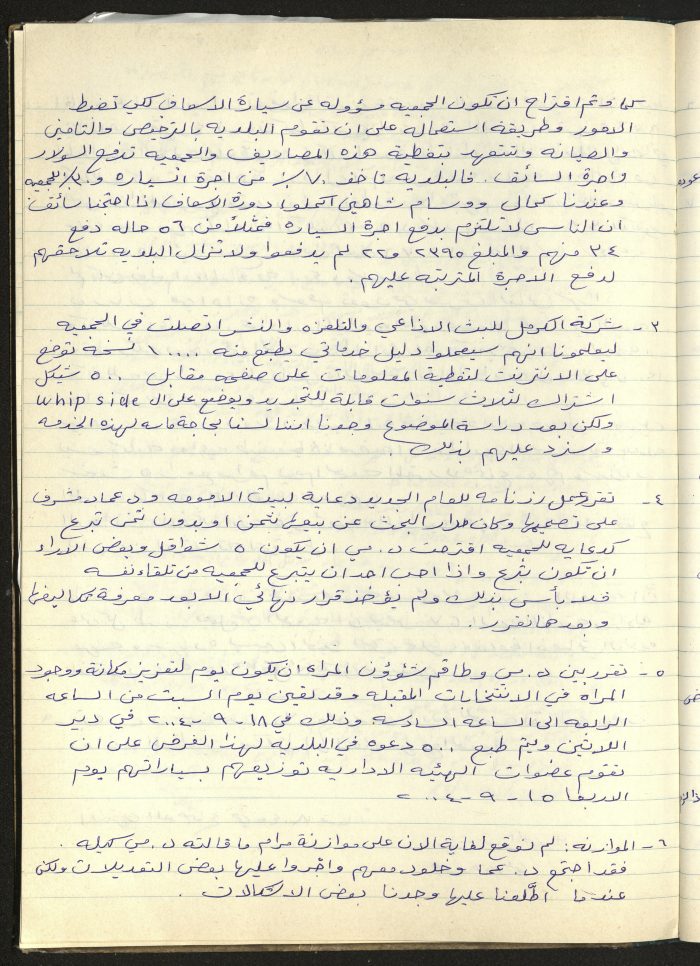 كما وتم اقتراح ان تكون الجمعيه مسؤوله عن سيارة الاسعاف لكي تضبط
الامور وطريقة استعماله على ان تقوم البلديه بالترخيص والتامين
والصيانه وتتعهد بتغطية هذه المصاريف والجمعيه تدفع السولار
واجرة السائق. فالبلديه تاخذ ٧٠٪ من اجرة السياره و٣٠٪ للجمعيه
وعندنا كمال ووسام شاهين اكملوا دورة الاسعاف اذا احتجنا سائق
ان الناس لا تلتزم بدفع اجرة السياره فمثلاً من ٥٦ حاله دفع
٣٤ منهم والمبلغ ٢٣٩٥ و٢٢ لم يدفعوا ولا تزال البلديه تلاحقهم
لدفع الاجرة المترتبه عليهم.
٣- شركة الكرمل للبث الاذاعي والتلفزه والنشر اتصلت في الجمعيه
ليعلمونا انهم سيعملوا دليل خدماتي يطبع منه ١٠٠٠٠ نسخة توضع
على الانترنت لتغطية المعلومات على صفحه مقابل ٥٠٠ شيكل
اشتراك لثلاث سنوات قابلة للتجديد ويوضع على ال whip side
ولكن بعد دراسة الموضوع وجدنا اننا لسنا بحاجة ماسه لهذه الخدمه
وسنرد عليهم بذلك.
٤- تقرر عمل رزنامه للعام الجديد دعاية لبيت الامومه ود. عماد مشرف
على تصميمها وكان مدار البحث عن بيعها بثمن او بدون ثمن تبرع
كدعايه للجمعيه اقترحت د. مي ان يكون ٥ شواقل وبعض الاراء
ان تكون بتبرع واذا احب احد ان يتبرع للجمعيه من تلقاء نفسه
فلا بأس بذلك ولم يؤخذ قرار نهائي الا بعد معرفة تكاليفها
وبعدها نقرر.
٥- تقرر بين د. مي وطاقم شؤوون المراه ان يكون يوم لتعزيز مكانة ووجود
المراه في الانتخابات المقبله وقد تعين يوم السبت من الساعه
الرابعه الى الساعه السادسه وذلك في ١٨-٩-٢٠٠٤ في دير
اللاتين وتم طبع ٥٠٠ دعوه في البلديه لهذا الغرض على ان
تقوم عضوات الهيئه الاداريه توزيعهم بسياراتهم يوم
الاربعا ١٥-٩-٢٠٠٤
٦- الموازنه: لم نوقع لغاية الان على موازنة مرام ما قالته د. مي كيله.
فقد اجتمع د. وخلود معهم واجروا عليها بعض التعديلات ولكن
عندما اطّلعنا عليها وجدنا بعض الاشكالات.